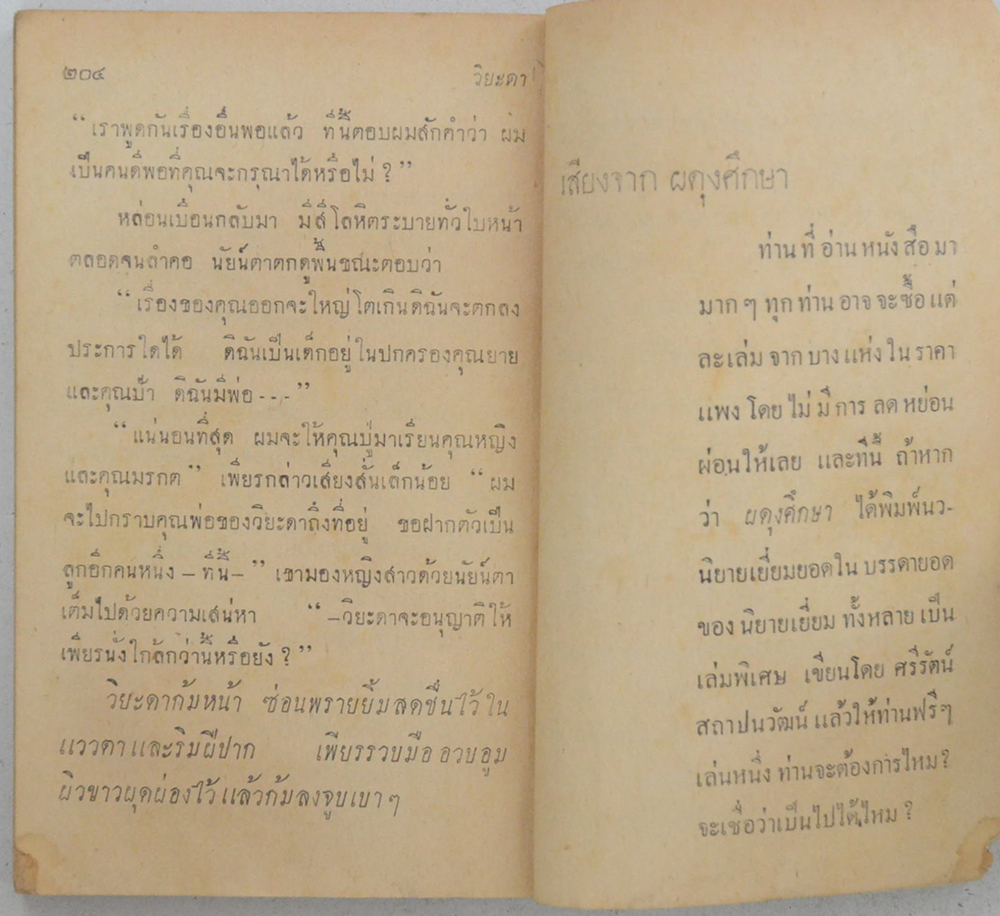 ๒๐๔
วิยะดา
“ เราพูดกันเรื่องอื่นพอแล้ว ทีนี้ตอบผมสักคำว่า ผม
เป็นคนดีพอที่คุณจะกรุณาได้หรือไม่ ? ”
หล่อนเบือนกลับมา มีสีโลหิตระบายทั่วใบหน้า
ตลอดจนลำคอ นัยน์ตาตกดูพื้นขณะตอบว่า
“ เรื่องของคุณออกจะใหญ่โตเกินดิฉันจะตกลง
ประการใดได้ ดิฉันเป็นเด็กอยู่ในปกครองคุณยาย
และคุณป้า ดิฉันมีพ่อ - - - ”
“ แน่นอนที่สุด ผมจะให้คุณปู่มาเรียนคุณหญิง
และคุณมรกต ” เพียรกล่าวเสียงสั่นเล็กน้อย “ ผม
จะไปกราบคุณพ่อของวิยะดาถึงที่อยู่ ขอฝากตัวเป็น
ลูกอีกคนหนึ่ง – ทีนี้ – ” เขามองหญิงสาวด้วยนัยน์ตา
เต็มไปด้วยความเสน่หา “ –วิยะดาจะอนุญาติให้
เพียรนั่งใกล้กว่านี้หรือยัง ? ”
วิยะดาก้มหน้า ซ่อนพรายยิ้มสดชื่นไว้ใน
แววตาและริมฝีปาก เพียรรวบมืออวบอูม
ผิวขาวผุดผ่องไว้ แล้วก้มลงจูบเบา ๆ
เสียงจาก ผดุงศึกษา
ท่านที่อ่านหนังสือมา
มาก ๆ ทุกท่าน อาจจะซื้อแต่
ละเล่ม จากบางแห่ง ในราคา
แพง โดยไม่มีการลดหย่อน
ผ่อนให้เลย และทีนี้ ถ้าหาก
ว่า ผดุงศึกษา ได้พิมพ์นว-
นิยายเยี่ยมยอดใน บรรดายอด
ของนิยายเยี่ยม ทั้งหลาย เป็น
เล่มพิเศษ เขียนโดย ศรีรัตน์
สถาปนวัฒน์ แล้วให้ท่านฟรี ๆ
เล่นหนึ่ง ท่านจะต้องการไหม ?
จะเชื่อว่าเป็นไปได้ไหม ?